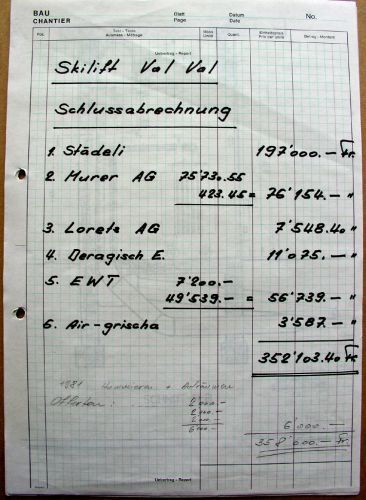 BAU
CHANTIER
Blatt
Page
Datum
Date
No.
Pos.
Text - Texte
Ausmass - Métrage
Quant.
Einheitspreis
Prix par unité
Betrag - Montant
Uebertrag - Report
Skilift Val Val
Schlussabrechnung
1. Städeli 197'000.— Fr.
2. Murer AG 75'730.55
423.45 = 76'154.— "
3. Loretz AG 7'548.40 "
4. Deragisch E. 11'075.— "
5. EWT 7'200.—
49'539.— = 56'739.— "
6. Air-grischa 3'587.— "
352'103.40 Fr.
1981 + Aufräumen
Offerten: 2'000.—
6'000.—
358'000.— Fr.
Uebertrag - Report